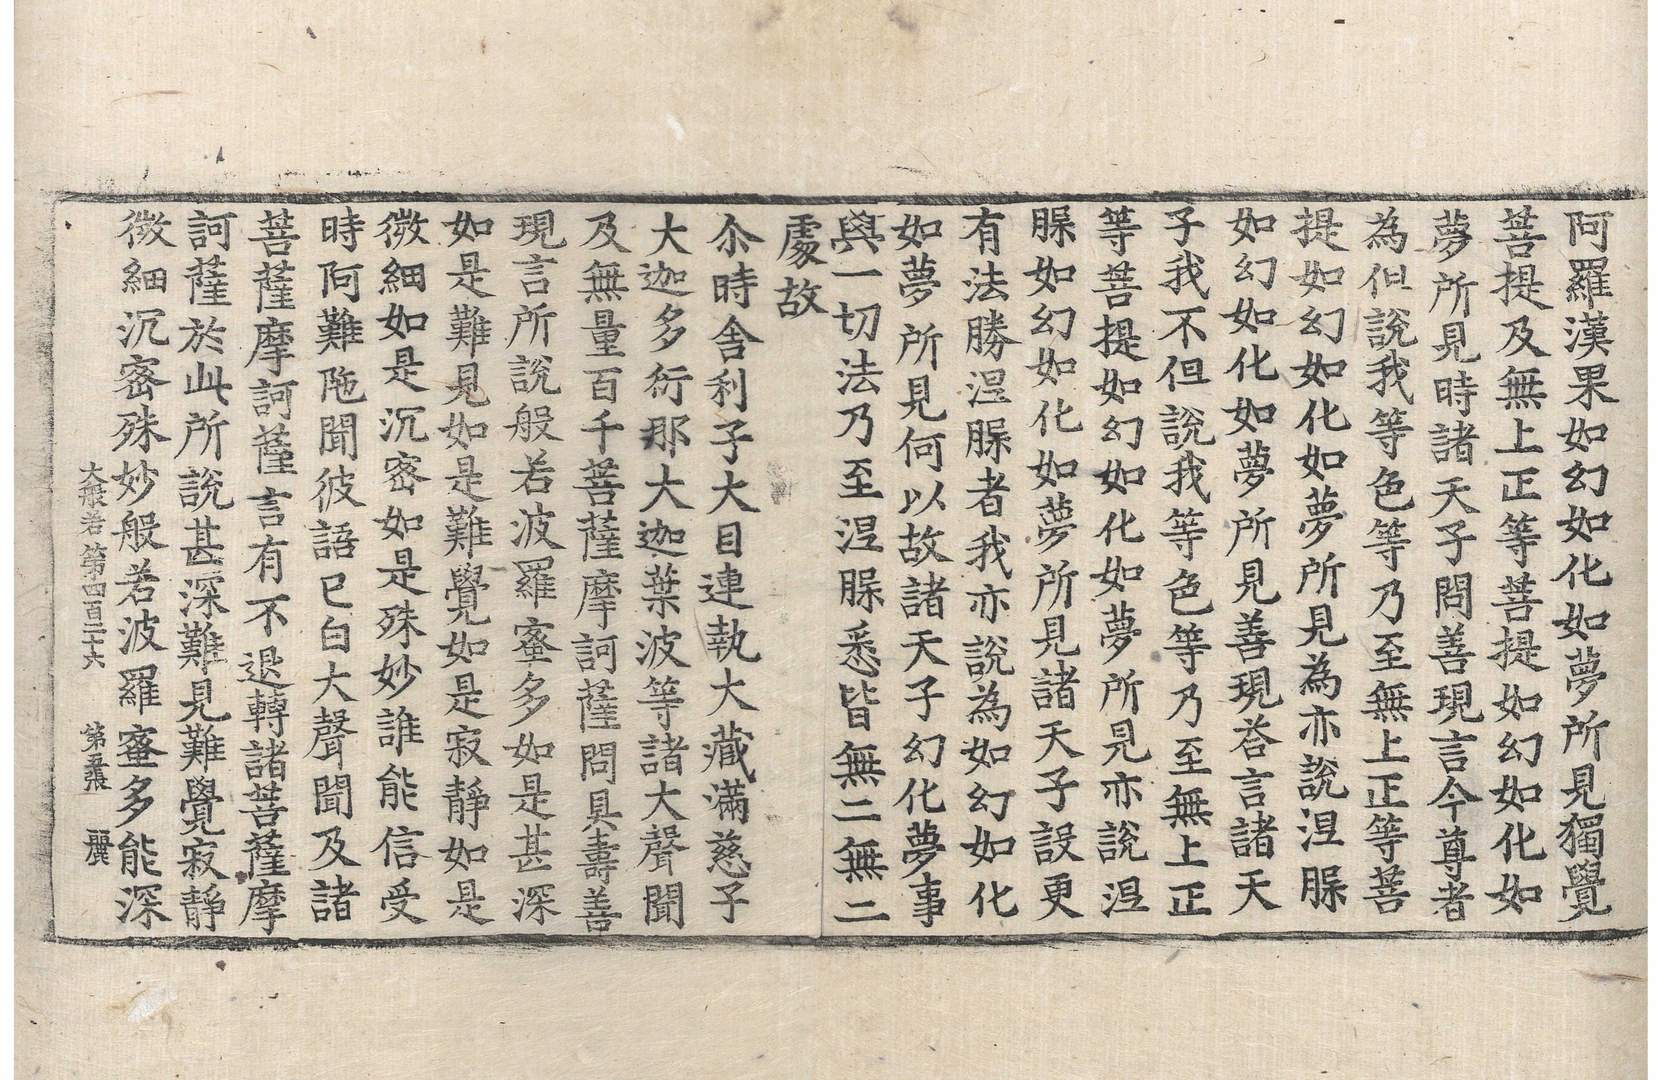 阿羅漢果如幻如化如夢所見獨覺
菩提及無上正等菩提如幻如化如
夢所見時諸天子問善現言今尊者
為但說我等色等乃至無上正等菩
提如幻如化如夢所見為亦說涅脲
如幻如化如夢所見善現荅言諸天
子我不但說我等色等乃至無上正
等菩提如幻如化如夢所見亦說涅
脲如幻如化如夢所見諸天子設更
有法勝涅脲者我亦說為如幻如化
如夢所見何以故諸天子幻化夢事
與一切法乃至涅脲悉皆無二無二
處故
尒時舍利子大目連執大藏滿慈子
大迦多衍那大迦葉波等諸大聲聞
及無量百千菩薩摩訶薩問具壽善
現言所說般若波羅蜜多如是甚深
如是難見如是難覺如是寂靜如是
微細如是沉密如是殊妙誰能信受
時阿難陁聞彼語已白大聲聞及諸
菩薩摩訶薩言有不退轉諸菩薩摩
訶薩於此所說甚深難見難覺寂靜
微細沉密殊妙般若波羅蜜多能深
大般若第四百二十六 第五張 麗